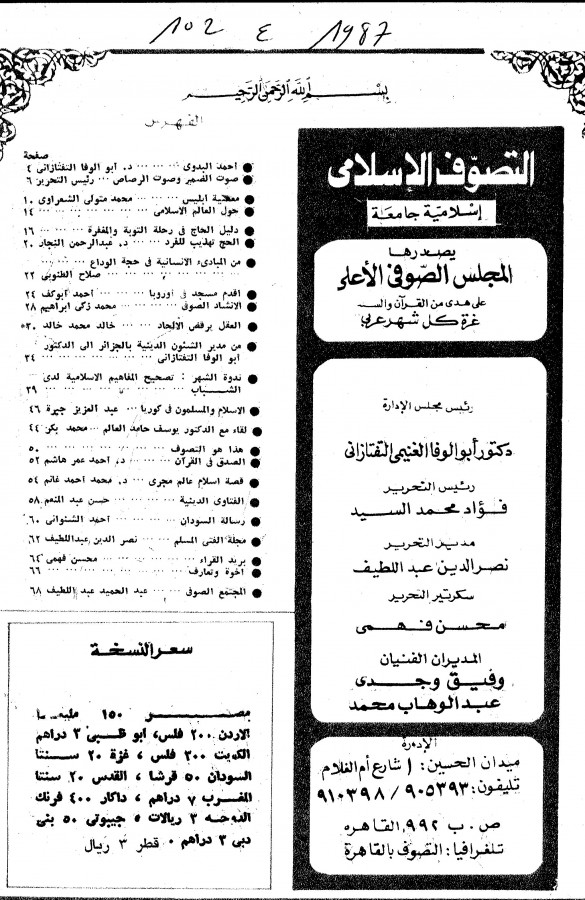 102 ع 1987
بسم الله الرحمن الرحيم
الفهرس
صفحة
● أحمد البدوى ... ... ... د. أبو الوفا التفتازانى ٤
● صوت الضمير وصوت الرصاص ... رئيس التحرير ٦
● معصية ابليس ... ... ... محمد متولى الشعراوى ١٠
● حول العالم الاسلامى ... ... ... ... ١٤
● دليل الحاج فى رحلة التوبة والمغفرة ... ... ١٦
● الحج تهذيب للفرد ... ... د. عبدالرحمن النجار ٢٠
● من المبادىء الانسانية فى حجة الوداع ... ...
... ... ... ... ... صلاح الطنوبى ٢٢
● أقدم مسجد فى أوروبا ... ... ... أحمد أبوكف ٢٤
● الانشاد الصوفى ... ... ... محمد زكى ابراهيم ٢٨
● العقل يرفض الالحاد ... ... خالد محمد خالد ٣٠
● من مدير الشئون الدينية بالجزائر الى الدكتور
أبو الوفا التفتازانى ... ... ... ... ٣٤
● ندوة الشهر : تصحيح المفاهيم الاسلامية لدى
الشباب ... ... ... ... ... ٣٩
● الاسلام والمسلمون فى كوريا ... عبد العزيز جيرة ٤٦
● لقاء مع الدكتور يوسف حامد العالم ... محمد بكر ٤٤
● هذا هو التصوف ... ... ... ... ٥٠
● الصدق فى القرآن ... ... د. أحمد عمر هاشم ٥٢
● قصة اسلام عالم مجرى ... د. محمد أحمد غانم ٥٤
● الفتاوى الدينية ... ... ... حسن عبد المنعم ٥٨
● رسالة السودان ... ... ... أحمد الشنوانى ٦٠
● مجلة الفتى المسلم ... ... نصر الدين عبداللطيف ٦٢
● بريد القراء ... ... ... ... محسن فهمى ٦٤
● أخوة وتعارف ... ... ... ... ٦٦
● المجتمع الصوفى ... ... عبد الحميد عبد اللطيف ٦٨
سعر النسخة
مصر ١٥٠
الاردن ٢٠٠ فلس، ابو ظبى ٣ دراهم
الكويت ٢٠٠ فلس ، غزة ٢٠ سنتا
السودان ٥٠ قرشا ، القدس ٢٠ سنتا
المغرب ٧ دراهم ، داكار ٤٠٠ فرنك
الدوحه ٣ ريالات ؛ جيبوتى ٥٠ بنى
دبى ٣ دراهم ٠ قطر ٣ ريال
التصوف الإسلامى
إسلامية جامعة
يصدرها
المجلس الصوفى الأعلى
على هدى من القرآن والسنة
غرة كل شهر عربى
رئيس مجلس الإدارة
دكتور أبو الوفا الغنيمى التفتازانى
رئيس التحرير
فؤاد محمد السيد
مدير التحرير
نصر الدين عبد اللطيف
سكرتير التحرير
محسن فهمى
المديران الفنيان
وفيق وجدى
عبد الوهاب محمد
الإدارة
ميدان الحسين: ١ شارع أم الغلام
تليفون: ٩٠٥٣٩٣ / ٩١٠٣٩٨
ص . ب ٩٩٢ القاهره
تلغرافيا: التصوف بالقاهرة